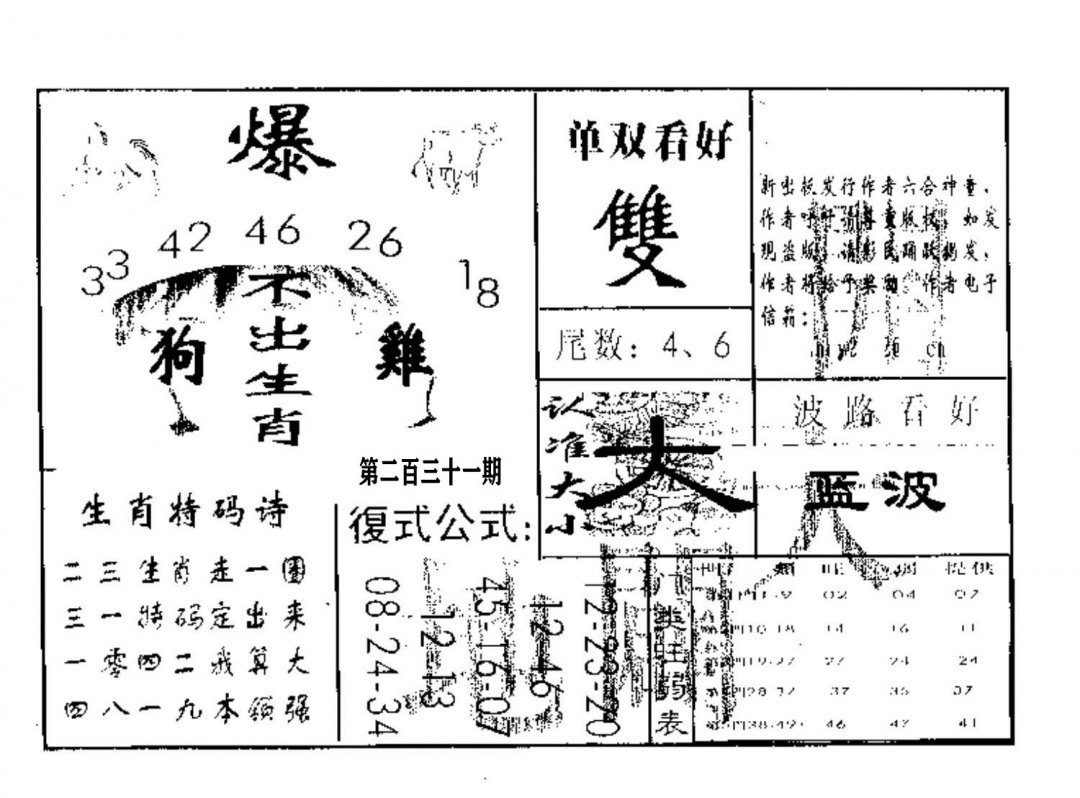 爆
33 42 46 26 18
不出生肖
狗
雞
单双看好
雙
尾数：4、6
新出板发行作者六合神童，
作者呼吁请尊重版权，如发
现盗版，请彩民踊跃揭发，
作者将给予奖励，作者电子
信箱：
认准大小
大
波路看好
蓝波
第二百三十一期
生肖特码诗
二三生肖走一圈
三一特码定出来
一零四二我算大
四八一九本领强
復式公式：
08-24-34
12 13
45-16-07
12-46
12-23-20
门类旺弱表
提供
02 04 07
14 16 11
27 24 24
37 35 37
46 47 41